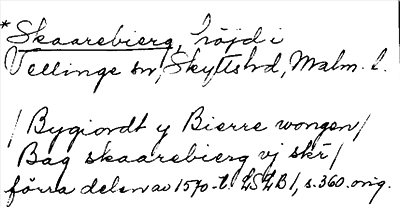 *Skaarebierg, höjd i
Vellinge sn, Skyttshd, Malm. l.
/ Bygiordt y Bierre wongen /
Bag skaarebierg vj skr /
förra delen av 1570-t. LSLB 1, s. 360. orig.